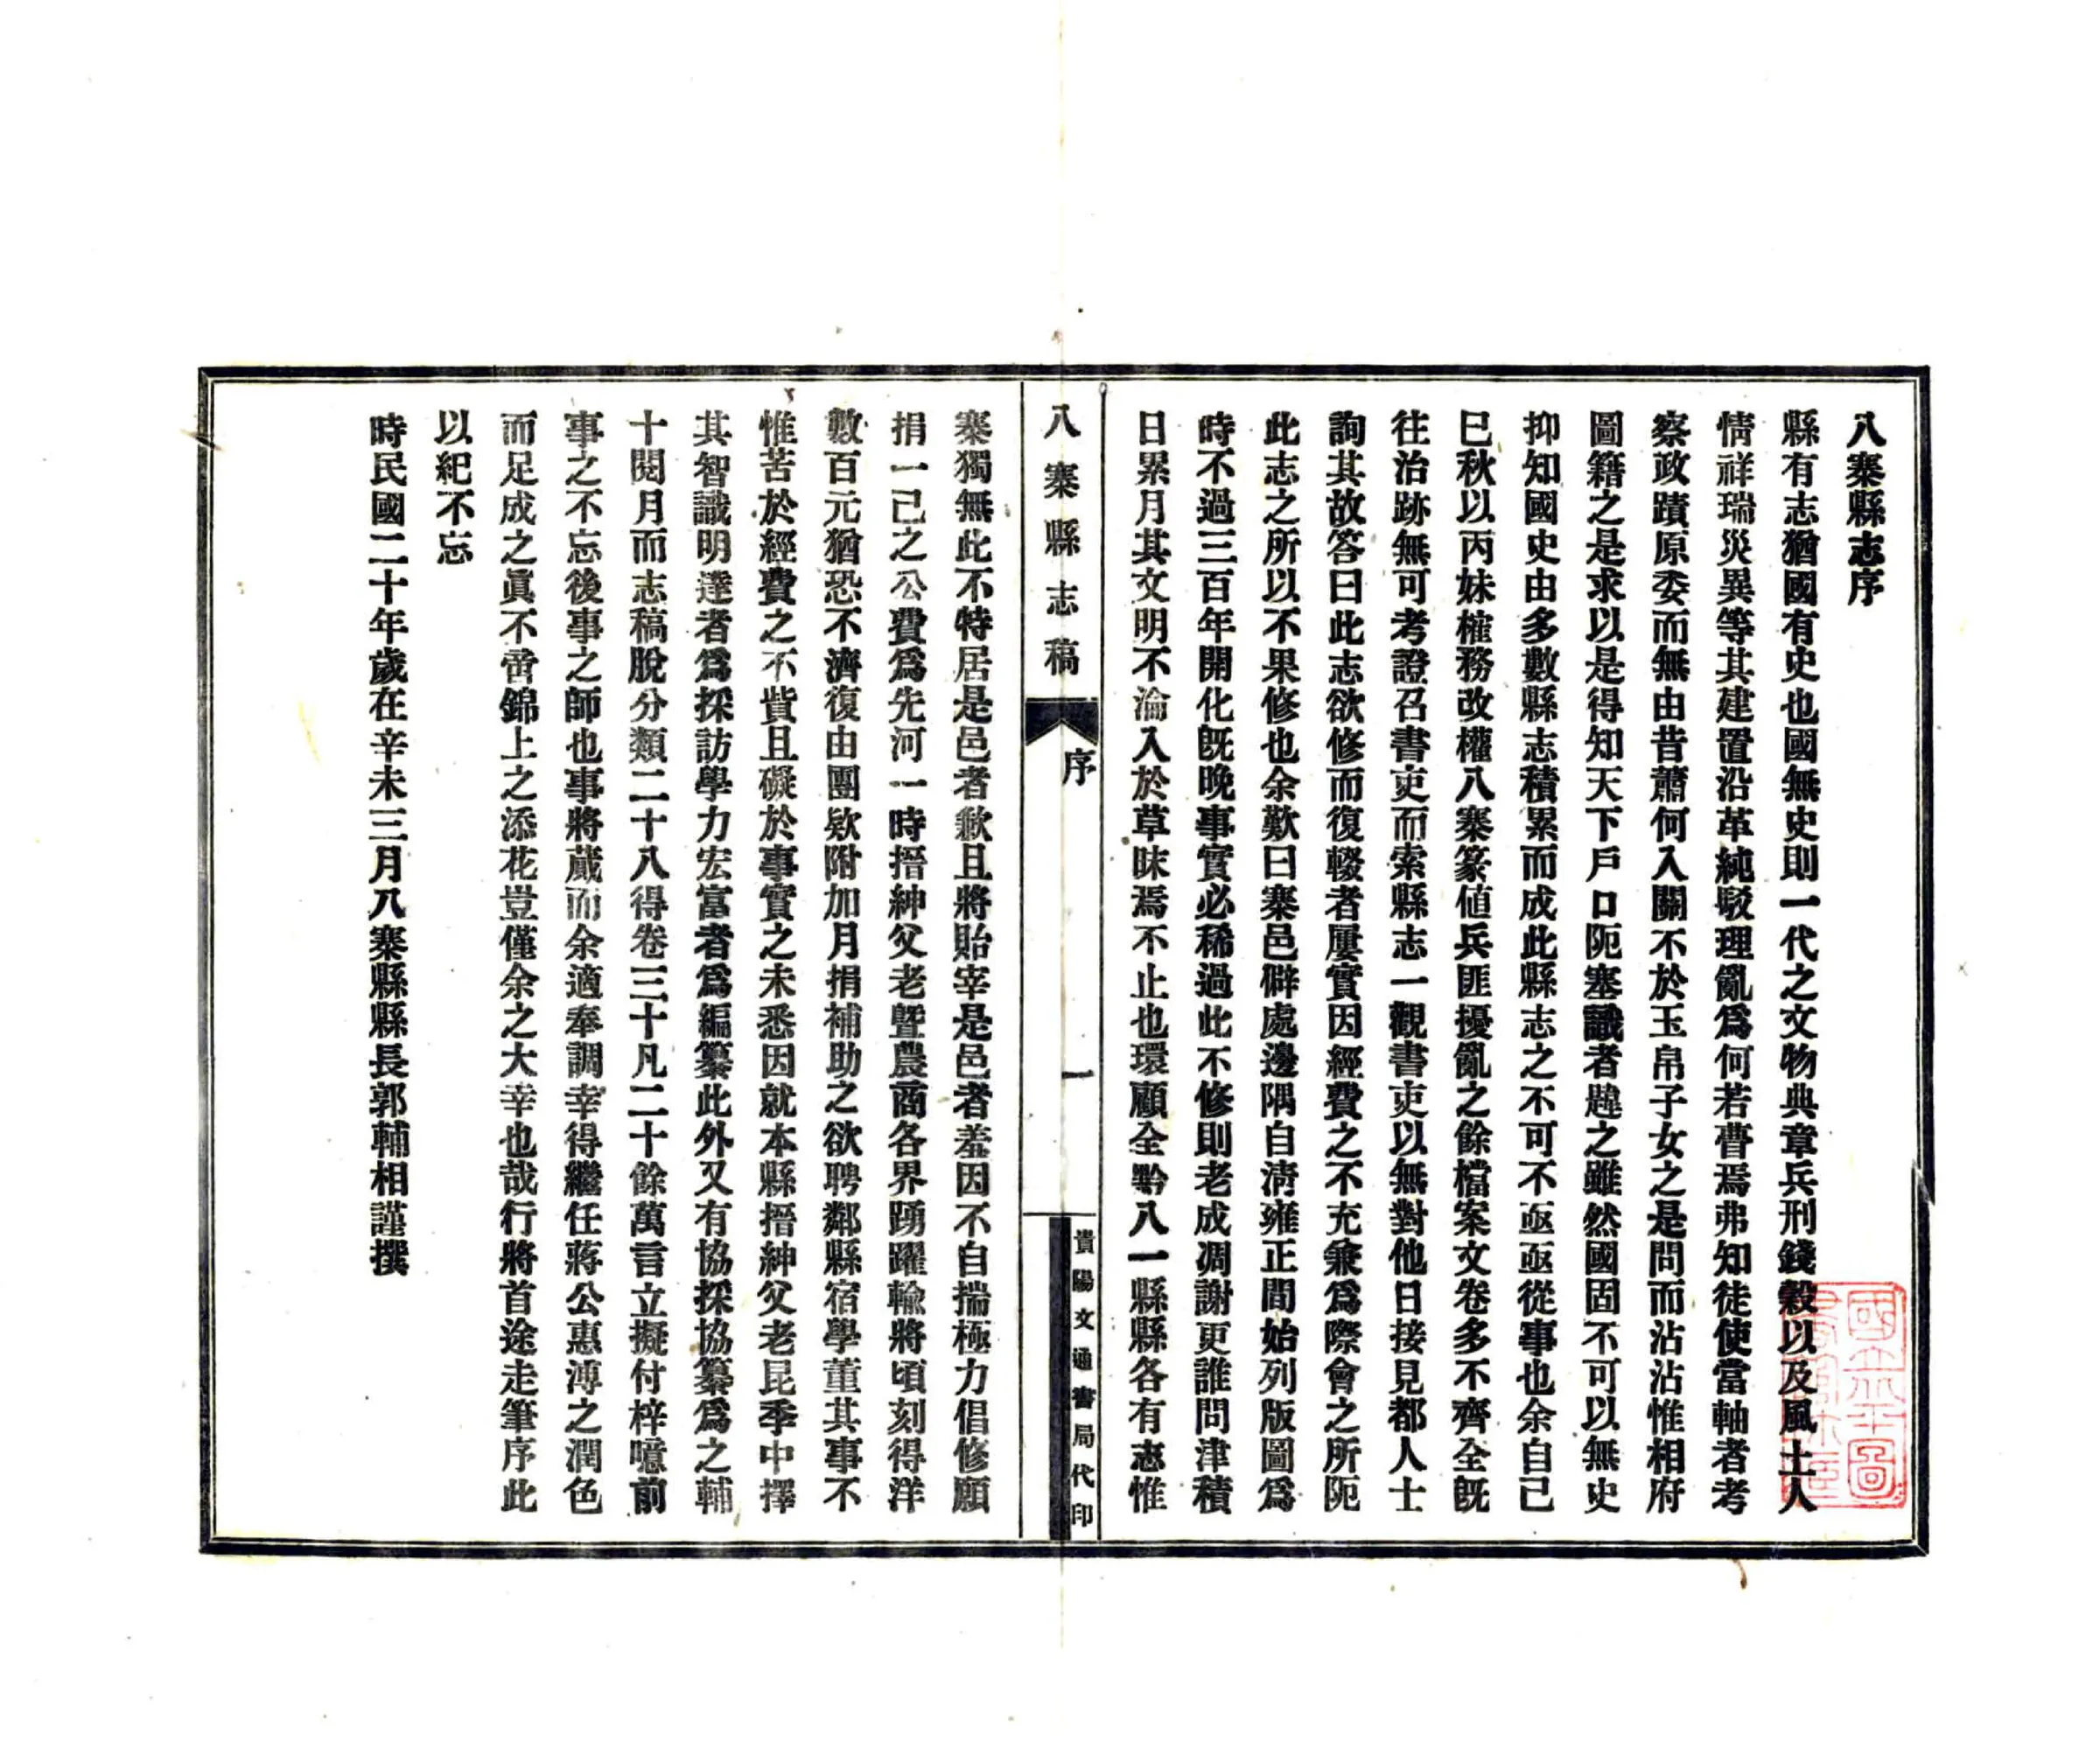 八寨縣志序
縣有志猶國有史也國無史則一代之文物典章兵刑錢穀以及風土人
情祥瑞災異等其建置沿革純駁理亂爲何若瞢焉弗知徒使當軸者考
察政蹟原委而無由昔蕭何入關不於玉帛子女之是問而沾沾惟相府
圖籍之是求以是得知天下戶口阨塞識者韙之雖然國固不可以無史
抑知國史由多數縣志積累而成此縣志之不可不亟亟從事也余自己
巳秋以丙妹榷務改權八寨篆値兵匪擾亂之餘檔案文卷多不齊全旣
往治跡無可考證召書吏而索縣志一觀書吏以無對他日接見都人士
詢其故答曰此志欲修而復輟者屢實因經費之不充兼爲際會之所阨
此志之所以不果修也余歎曰寨邑僻處邊隅自淸雍正間始列版圖爲
時不過三百年開化旣晚事實必稀過此不修則老成凋謝更誰問津積
日累月其文明不淪入於草昧焉不止也環顧全黔八一縣縣各有志惟
八寨縣志稿
序
一
貴陽文通書局代印
寨獨無此不特居是邑者歉且將貽宰是邑者羞因不自揣極力倡修願
捐一己之公費爲先河一時搢紳父老曁農商各界踴躍輸將頃刻得洋
數百元猶恐不濟復由團欵附加月捐補助之欲聘鄰縣宿學董其事不
惟苦於經費之不貲且礙於事實之未悉因就本縣搢紳父老昆季中擇
其智識明達者爲採訪學力宏富者爲編纂此外又有協採協纂爲之輔
十閱月而志稿脫分類二十八得卷三十凡二十餘萬言立擬付梓噫前
事之不忘後事之師也事將蕆而余適奉調幸得繼任蔣公惠溥之潤色
而足成之眞不啻錦上之添花豈僅余之大幸也哉行將首途走筆序此
以紀不忘
時民國二十年歲在辛未三月八寨縣縣長郭輔相謹撰